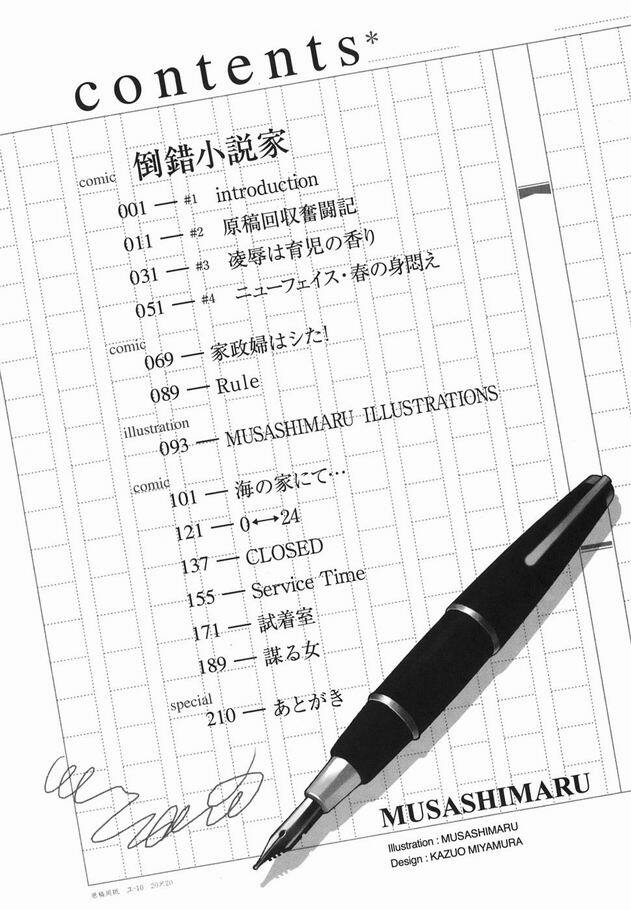 contents*
comic 倒錯小説家
001 — #1 introduction
011 — #2 原稿回収奮闘記
031 — #3 凌辱は育児の香り
051 — #4 ニューフェイス・春の身悶え
comic
069 — 家政婦はシた!
089 — Rule
illustration
093 — MUSASHIMARU ILLUSTRATIONS
comic
101 — 海の家にて…
121 — 0↔24
137 — CLOSED
155 — Service Time
171 — 試着室
189 — 謀る女
special
210 — あとがき
MUSASHIMARU
Illustration : MUSASHIMARU
Design : KAZUO MIYAMURA
20×20